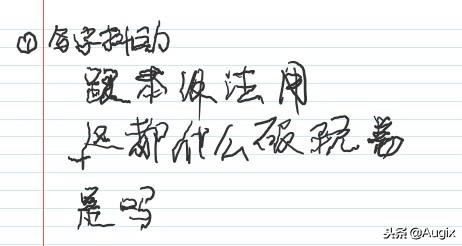 ① 写字抖动
跟本没法用
这都什么破玩意
是吗
头条 @Augix